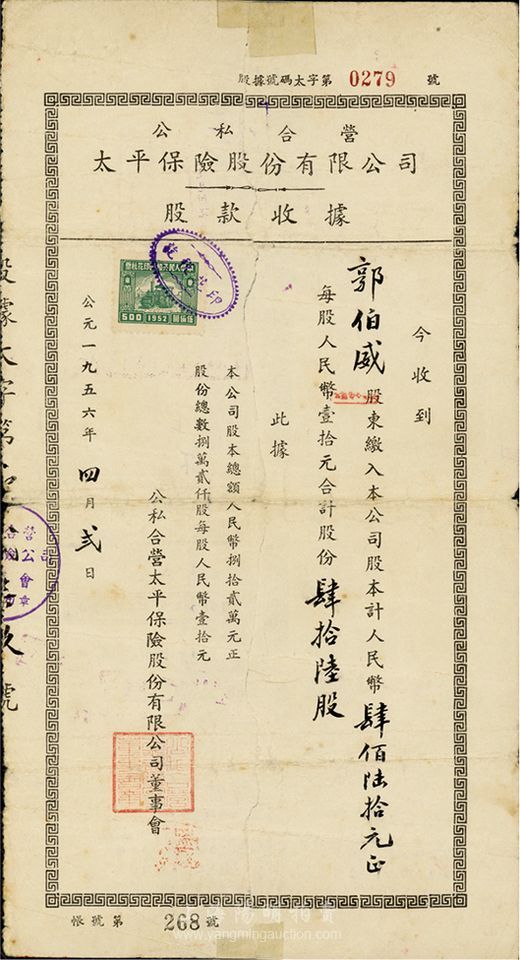 股據號碼太字第 0279 號
公私合營
太平保險股份有限公司
股款收據
今收到
郭伯威股東繳入本公司股本計人民幣肆佰陸拾元正
每股人民幣壹拾元合計股份肆拾陸股
此據
本公司股本總額人民幣捌拾貳萬元正
股份總數捌萬貳仟股每股人民幣壹拾元
公私合營太平保險股份有限公司董事會
公元一九五六年四月弍日
500 1952 伍佰圓
股據太字第
玖號
帳號第 268 號
www.yangmingauction.com